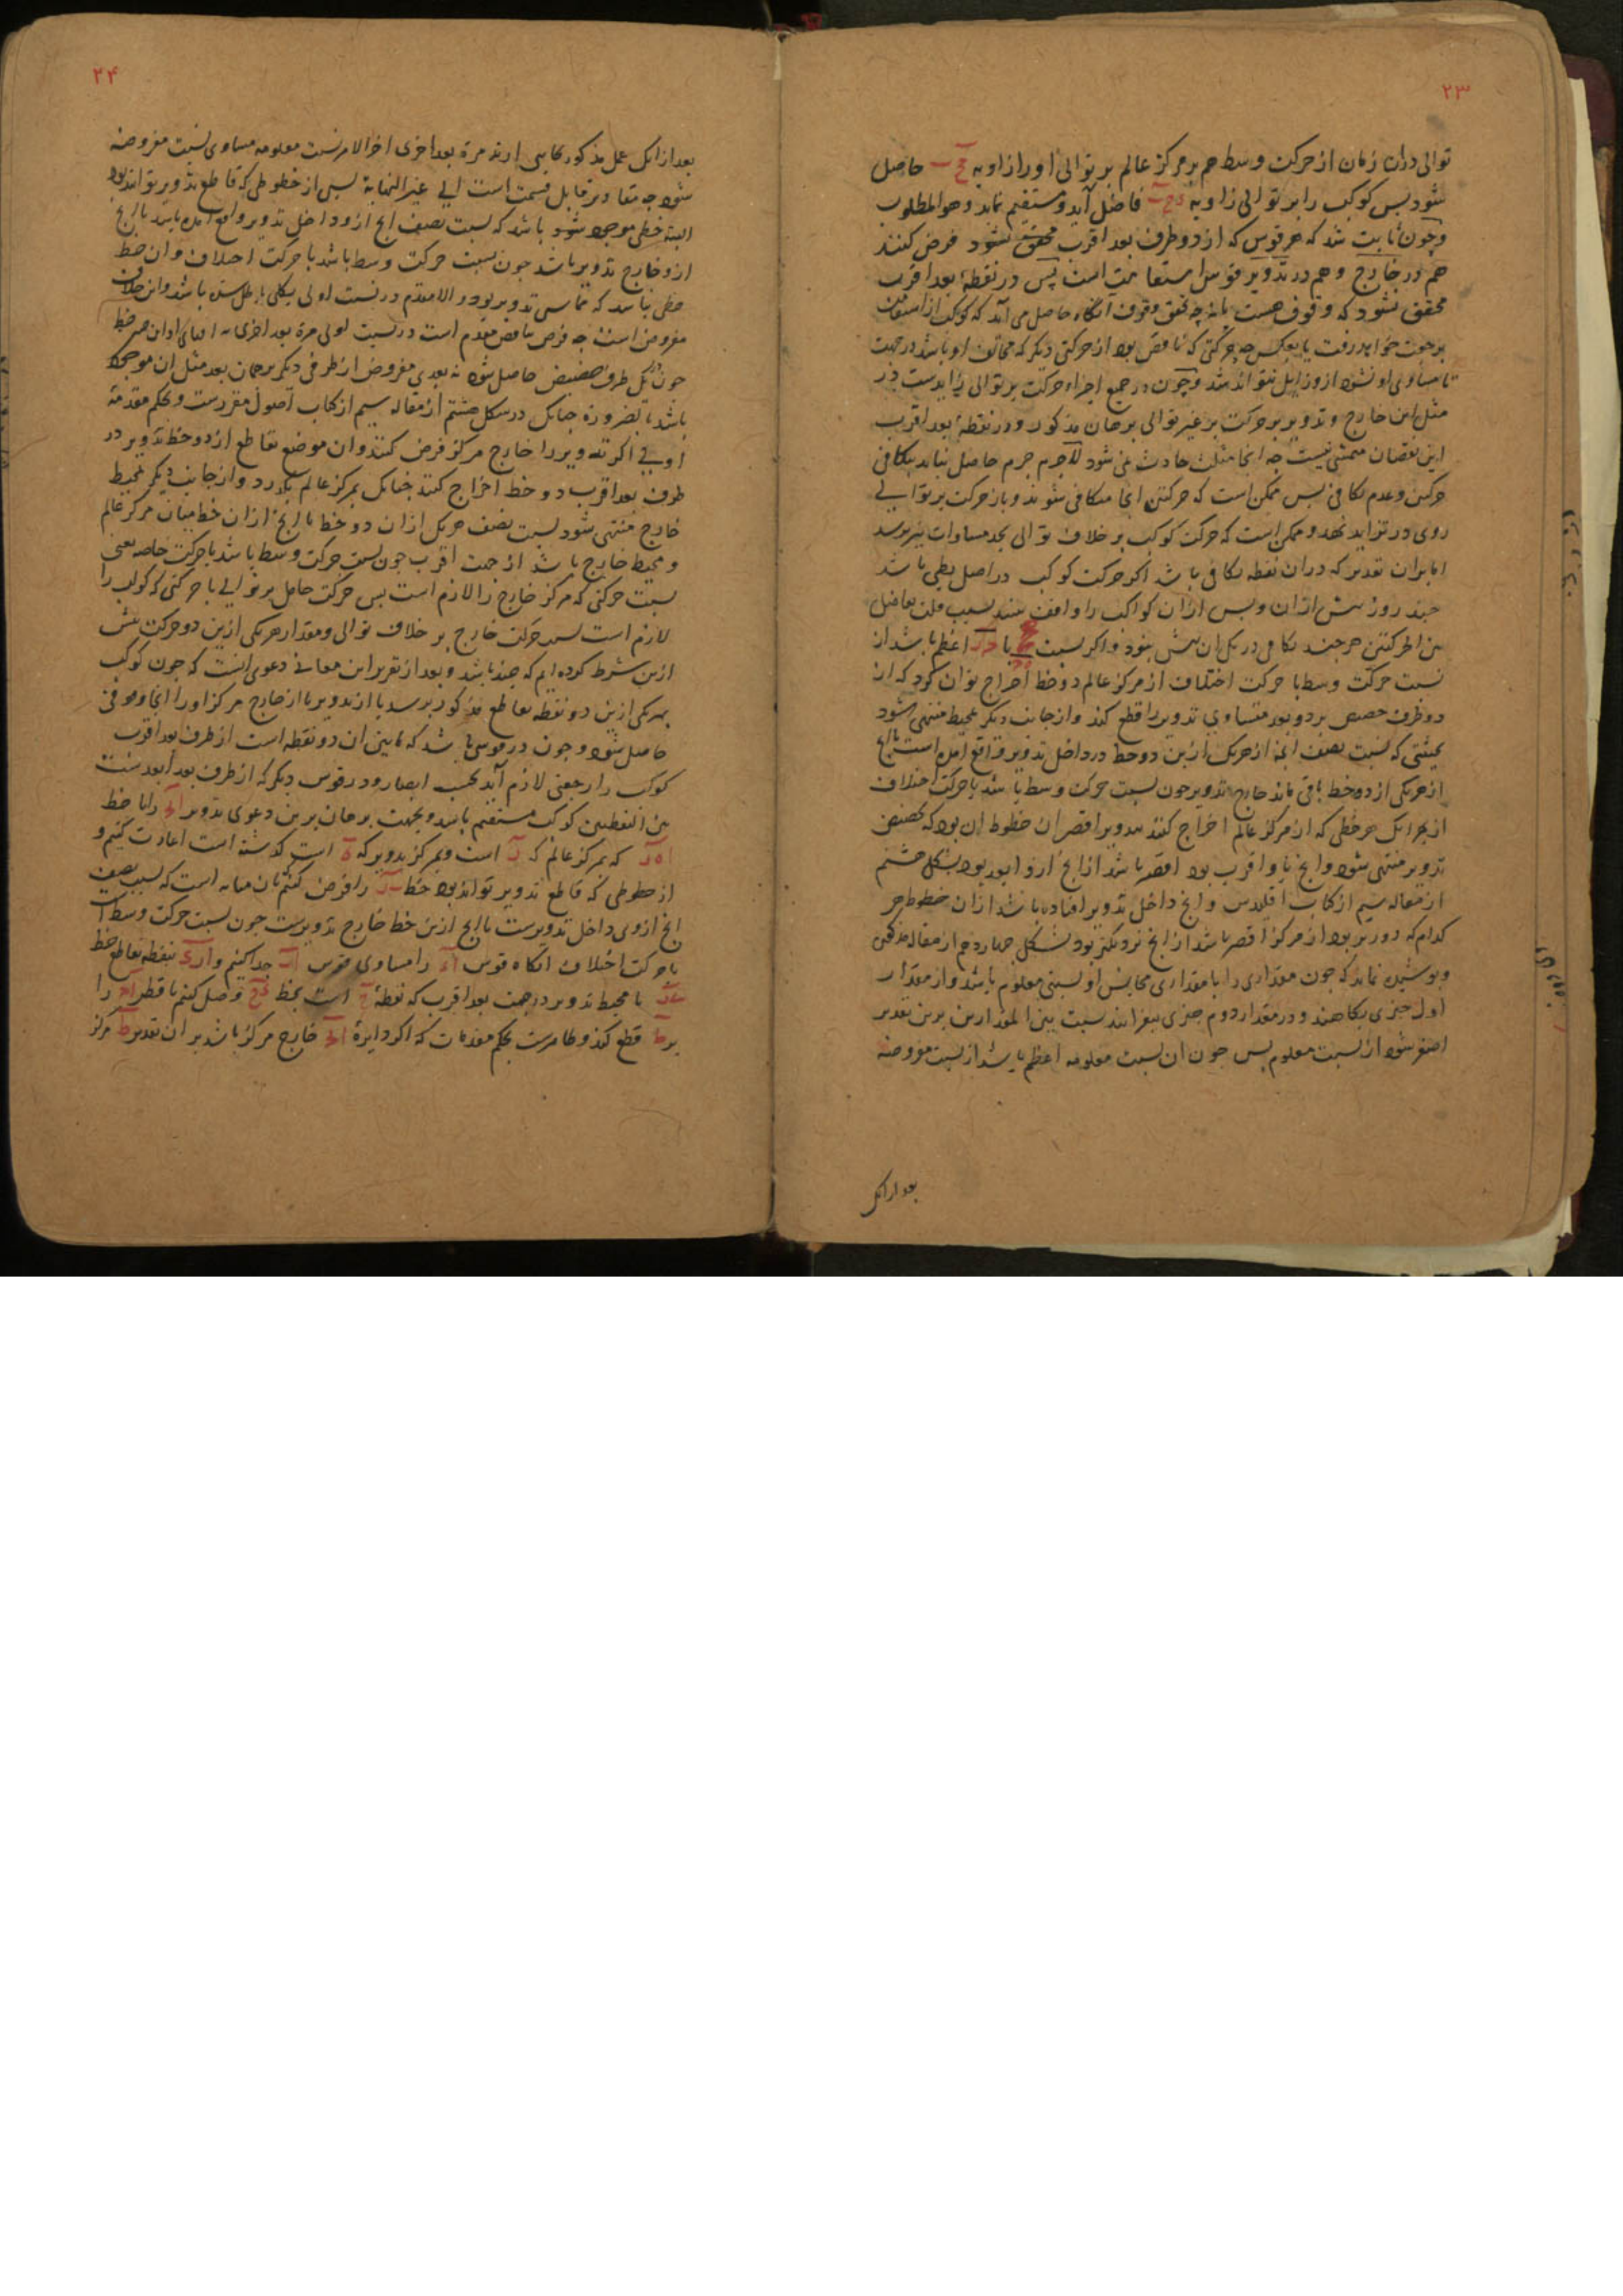 ٢٣
توالی دران زمان از حرکت وسط هم بر مرکز عالم بر توالی او را زاویه حاصل
شود بس کوکب را بر توالی زاویه فاضل آید و مستقیم نماید و هو المطلوب
و چون ثابت شد که هر قوس که از دو طرف بعد اقرب محقق شود فرض کنند
هم در خارج و هم در تدویر قوس استقامت است پس در نقطهٔ بعد اقرب
محقق نشود که وقوف هست یا نه چه تحقق وقوف آنگاه حاصل می آید که کوکب از استقامت
برجعت خواهد رفت یا بعکس چه حرکتی که ناقص بود از حرکتی دیگر که مخالف او باشد در جهت
تا مساوی او نشود ازو زایل نتواند شد و چون در جمیع اجزاء حرکت بر توالی زایدست در
مثل این خارج و تدویر بر حرکت بر غیر توالی برهان مذکور و در نقطهٔ بعد اقرب
این نقصان متمشی نیست چه انجا مثلث حادث نمی شود لاجرم جزم حاصل نیاید بتکافی
حرکتین وعدم تکافی بس ممکن است که حرکتین انجا متکافی شوند و باز حرکت بر توالی
روی در تزاید نهد و ممکن است که حرکت کوکب بر خلاف توالی بحد مساوات نیز برسد
اما بران تقدیر که دران نقطه تکافی باشد اکر حرکت کوکب در اصل بطی باشد
چند روز بیش ازان و بس ازان کواکب را واقف بینند بسبب قلت تفاضل
بین الحرکتین هرچند تکافی در یک ان بیش نبود و اکر نسبت با اعظم باشد از
نسبت حرکت وسط با حرکت اختلاف از مرکز عالم دو خط اخراج توان کرد که از
دو طرف حضیض بر دو بعد متساوی تدویر را قطع کند و از جانب دیگر بمحیط منتهی شود
بحیثتی که نسبت نصف انچه از هر یک ازین دو خط در داخل تدویر واقع امده است با انچ
از هر یکی از دو خط باقی ماند خارج تدویر چون نسبت حرکت وسط باشد با حرکت اختلاف
از بهر انک هر خطی که از مرکز عالم اخراج کنند بتدویر اقصر ان خطوط ان بود که بحضیض
تدویر منتهی شود و انچ باو اقرب بود اقصر باشد از انچ ازو ابعد بود بشکل هشتم
از مقاله سیم از کتاب اقلیدس و انچ داخل تدویر افتاده باشد ازان خطوط هر
کدام که دورتر بود از مرکز اقصر باشد از انچ نزدیکتر بود بشکل چهاردهم از مقاله مذکور
و پوشیده نماند که چون مقداری را با مقداری مجانس او نسبتی معلوم باشد و از مقدار
اول چیزی بکاهند و در مقدار دوم چیزی بیفزایند نسبت بین المقدارین برین تقدیر
اصغر شود از نسبت معلوم بس چون ان نسبت معلومه اعظم باشد از نسبت مفروضه
بعد از انک
٢۴
بعد از انک عمل مذکور بجای ارند مرة بعد اخری اخر الامر نسبت معلومه مساوی نسبت مفروضه
شود چه مقادیر قابل قسمت است الی غیر النهایة بس از خطوطی که قاطع تدویر تواند بود
البته خطی موجود شود باشد که نسبت نصف انچ ازو داخل تدویر واقع امده باشد با انچ
ازو خارج تدویر باشد چون نسبت حرکت وسط باشد با حرکت اختلاف و ان خط
خطی نباشد که مماس تدویر بود والا مقدم در نسبت اولی بکلی باطل شده باشد و این خلاف
مفروض است چه فرض تناقص مقدم است در نسبت اولی مرة بعد اخری نه افنای او این خط
چون یک طرف حضیض حاصل شود نه بعدی مفروض از طرفی دیگر بر همان بعد مثل ان موجود
باشد بالضرورة چنانک در شکل هشتم از مقاله سیم از کتاب اصول مقررست و بحکم مقدمهٔ
اولی اکر تدویر را خارج مرکز فرض کنند و ان موضع تقاطع از دو خط تدویر در
طرف بعد اقرب دو خط اخراج کنند چنانک بمرکز عالم بگذرد و از جانب دیگر بمحیط
خارج منتهی شود نسبت نصف هر یک ازان دو خط با انچ ازان خط میان مرکز عالم
و محیط خارج باشد از جهت اقرب چون نسبت حرکت وسط باشد با حرکت خاصه یعنی
نسبت حرکتی که مرکز خارج را لازم است بس حرکت حامل بر توالی با حرکتی که کوکب را
لازم است بسبب حرکت خارج بر خلاف توالی و مقدار هر یکی ازین دو حرکت بیش
ازین شرط کرده ایم که چند باشد و بعد از تقریر این معانی دعوی انست که چون کوکب
بهر یکی ازین دو نقطه تقاطع مذکور برسد یا از تدویر یا از خارج مرکز او را انجا وقوفی
حاصل شود و چون در قوسی باشد که مابین ان دو نقطه است از طرف بعد اقرب
کوکب را رجعتی لازم آید بحسب ابصار و در قوس دیگر که از طرف بعد ابعد است
بین النقطتین کوکب مستقیم باشد و بجهت برهان برین دعوی تدویر را با خط
که بمرکز عالم که است و بمرکز تدویر که است گذشته است اعادت کنیم و
از خطوطی که قاطع تدویر تواند بود خط را فرض کنیم بان مثابه است که نسبت نصف
انچ ازوی داخل تدویرست با انچ ازین خط خارج تدویرست چون نسبت حرکت وسط است
با حرکت اختلاف انگاه قوس را مساوی قوس جدا کنیم و از بنقطه تقاطع خط
با محیط تدویر در جهت بعد اقرب که نقطهٔ است بخط وصل کنیم تا قطر را
بر قطع کند و ظاهرست بحکم مقدمات که اکر دایرهٔ خارج مرکز باشد بر ان تقدیر مرکز